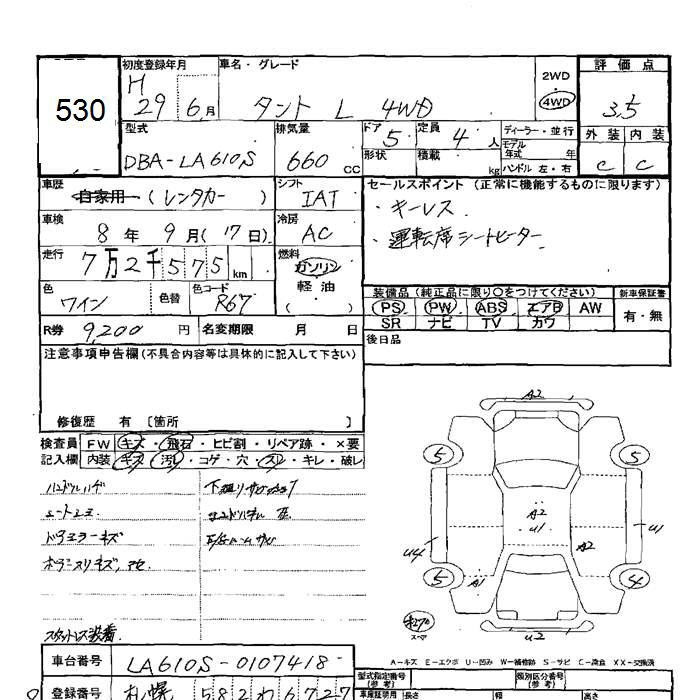 530
初度登録年月
H
29 6月
車名・グレード
タント L 4WD
2WD
4WD
評価点
3.5
外装 内装
C C
型式
DBA-LA610S
排気量
660 CC
ドア
5
定員
4人
形状
積載 kg
ディーラー・並行
モデル年式 年
ハンドル 左・右
車歴
自家用 (レンタカー)
シフト
IAT
セールスポイント (正常に機能するものに限ります)
・キーレス
・運転席シートヒーター
車検
8年 9月(17日)
冷房
AC
走行
7万2千575km
燃料
ガソリン
軽油
( )
色
ワイン
色替
色コード
R67
装備品(純正品に限り〇をつけてください)
新車保証書
PS PW ABS エアB AW
SR ナビ TV カワ
有・無
R券 9,200円
名変期限 月 日
後日品
注意事項申告欄(不具合内容等は具体的に記入して下さい)
修復歴 有 〔箇所 〕
検査員記入欄
FW キズ・飛石・ヒビ割・リペア跡・×要
内装 キズ・汚れ・コゲ・穴・スレ・キレ・破レ
スタットレス装着
A2
5 5
A2
U1
U1
U4
A2
5 A1 4
U2
スペア
A-キズ E-エクボ U-凹み W-補修跡 S-サビ C-腐食 XX-交換済
車台番号
LA610S-0107418
型式指定番号
(参考)
類別区分番号
(参考)
登録番号
札幌 582わ6727
長さ 幅 高さ